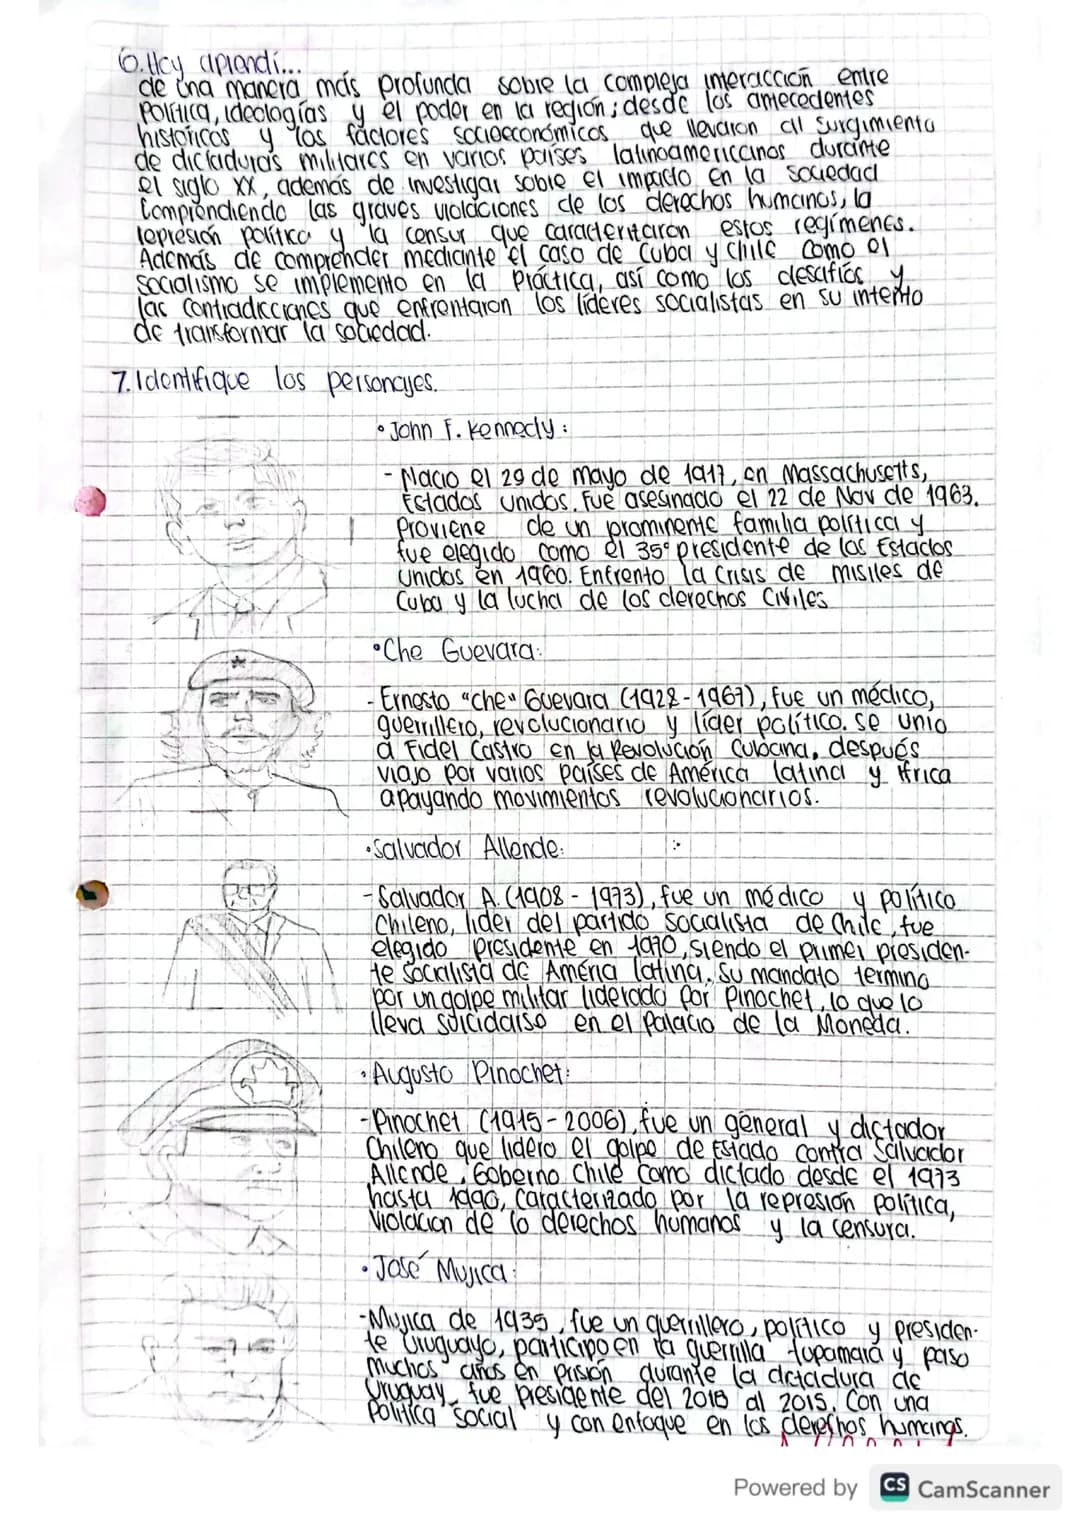 6. Hoy aprendí...
de una manera más profunda sobre la compleja interacción entre
Política, ideologías y el poder en la región; desde los antecedentes
históricos y los factores socioeconómicos que llevaron al surgimiento
de dictaduras militares en varios países latinoamericanos durante
el siglo XX, además de investigar sobre el impacto en la sociedad
Comprendiendo las graves violaciones de los derechos humanos, la
represión política y la censur que caracterizaron estos regímenes.
Además de comprender mediante el caso de Cuba y Chile como el
Socialismo se implemento en la Práctica, así como los desafíos y
las contradicciones que enfrentaron los líderes socialistas en su intento
de transformar la sociedad.
7. Identifique los personajes.
• John F. Kennedy:
- Nacio el 29 de mayo de 1917, en Massachusetts,
Estados Unidos. Fue asesinado el 22 de Nov de 1963.
Proviene de un prominente familia política y
fue elegido como el 35° presidente de los Estados
Unidos en 1960. Enfrento la Crisis de misiles de
Cuba y la lucha de los derechos Civiles
• Che Guevara:
- Ernesto "che" Guevara (1928-1967), fue un médico,
guerrillero, revolucionario y líder político. se unio
a Fidel Castro en la Revolución Cubana, después
viajo por varios países de América latina y Africa
apayando movimientos revolucionarios.
• Salvador Allende:
- Salvador A. (1908 - 1973), fue un médico y político
Chileno, lider del partido socialista de Chile, fue
elegido presidente en 1970, siendo el primer presiden-
te socialista de América latina. Su mandato termino
por un golpe militar liderado por Pinochet, lo que lo
lleva suicidarse en el Palacio de la Moneda.
• Augusto Pinochet:
- Pinochet (1915-2006), fue un general y dictador
Chileno que lidero el golpe de Estado contra Salvador
Allende. Goberno Chile como dictado desde el 1973
hasta 1990, caracterizado por la represión política,
violacion de lo derechos humanos y la censura.
• José Mujica:
- Mujica de 1935, fue un guerrillero, político y presiden-
te Uruguayo, participo en la guerrilla tupamara y paso
muchos años en prisión durante la dictadura de
Uruguay, fue presidente del 2010 al 2015. Con una
Política Social y con enfoque en los derechos humanos.
Powered by CS CamScanner